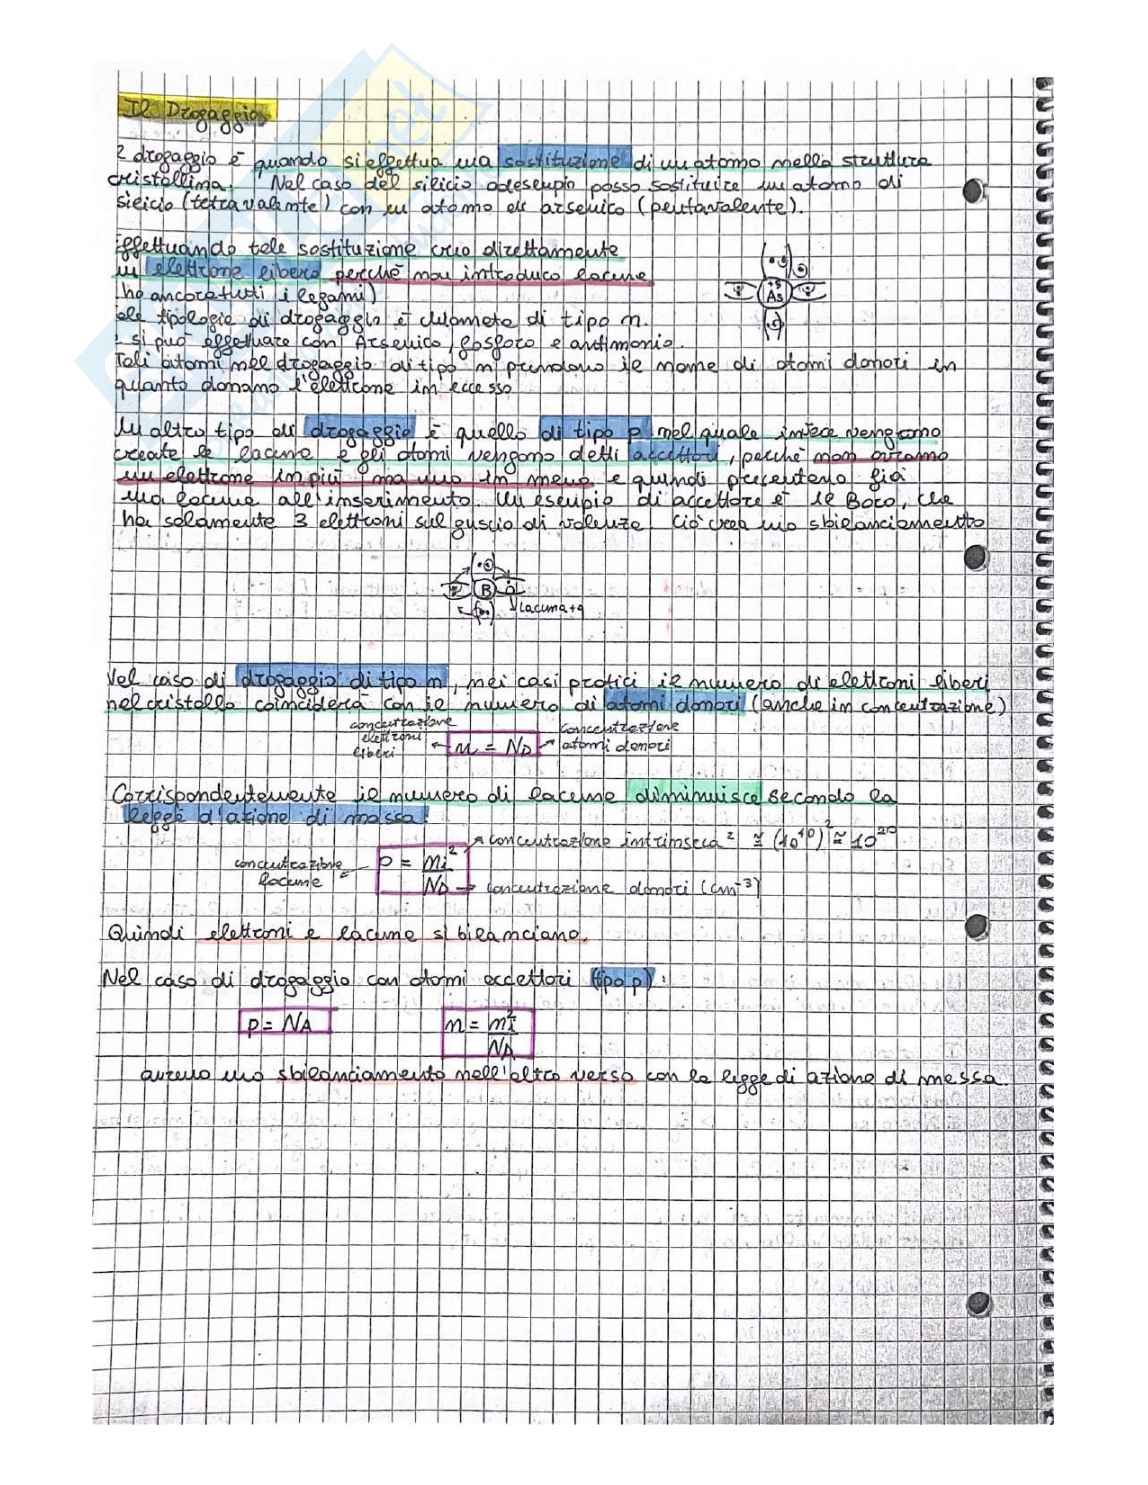 Il Drogaggio
Il drogaggio è quando si effettua una sostituzione di un atomo nella struttura
cristallina. Nel caso del silicio ad esempio posso sostituire un atomo di
silicio (tetravalente) con un atomo di arsenico (pentavalente).
Effettuando tale sostituzione creo direttamente
un elettrone libero perché non introduco lacune
(ho ancora tutti i legami)
tale tipologia di drogaggio è chiamata di tipo n.
e si può effettuare con Arsenico, fosforo e antimonio.
Tali atomi nel drogaggio di tipo n prendono il nome di atomi donori in
quanto donano l'elettrone in eccesso
As
Un altro tipo di drogaggio è quello di tipo p nel quale invece vengono
create le lacune e gli atomi vengono detti accettori, perché non avranno
un elettrone in più ma uno in meno e quindi presentano già
una lacuna all'inserimento. Un esempio di accettore è il Boro, che
ha solamente 3 elettroni sul guscio di valenza. Ciò crea uno sbilanciamento
B
Lacuna +q
Nel caso di drogaggio di tipo n, nei casi pratici il numero di elettroni liberi
nel cristallo coinciderà con il numero di atomi donori (anche in concentrazione)
concentrazione elettroni liberi ← n = ND → concentrazione atomi donori
Corrispondentemente il numero di lacune diminuisce secondo la
legge d'azione di massa:
concentrazione intrinseca² ≅ (10¹⁰)² ≅ 10²⁰
concentrazione lacune ← p = ni²/ND → concentrazione donori (cm⁻³)
Quindi elettroni e lacune si bilanciano.
Nel caso di drogaggio con atomi accettori (tipo p):
p = NA n = ni²/NA
avremo uno sbilanciamento nell'altro verso con la legge di azione di massa.